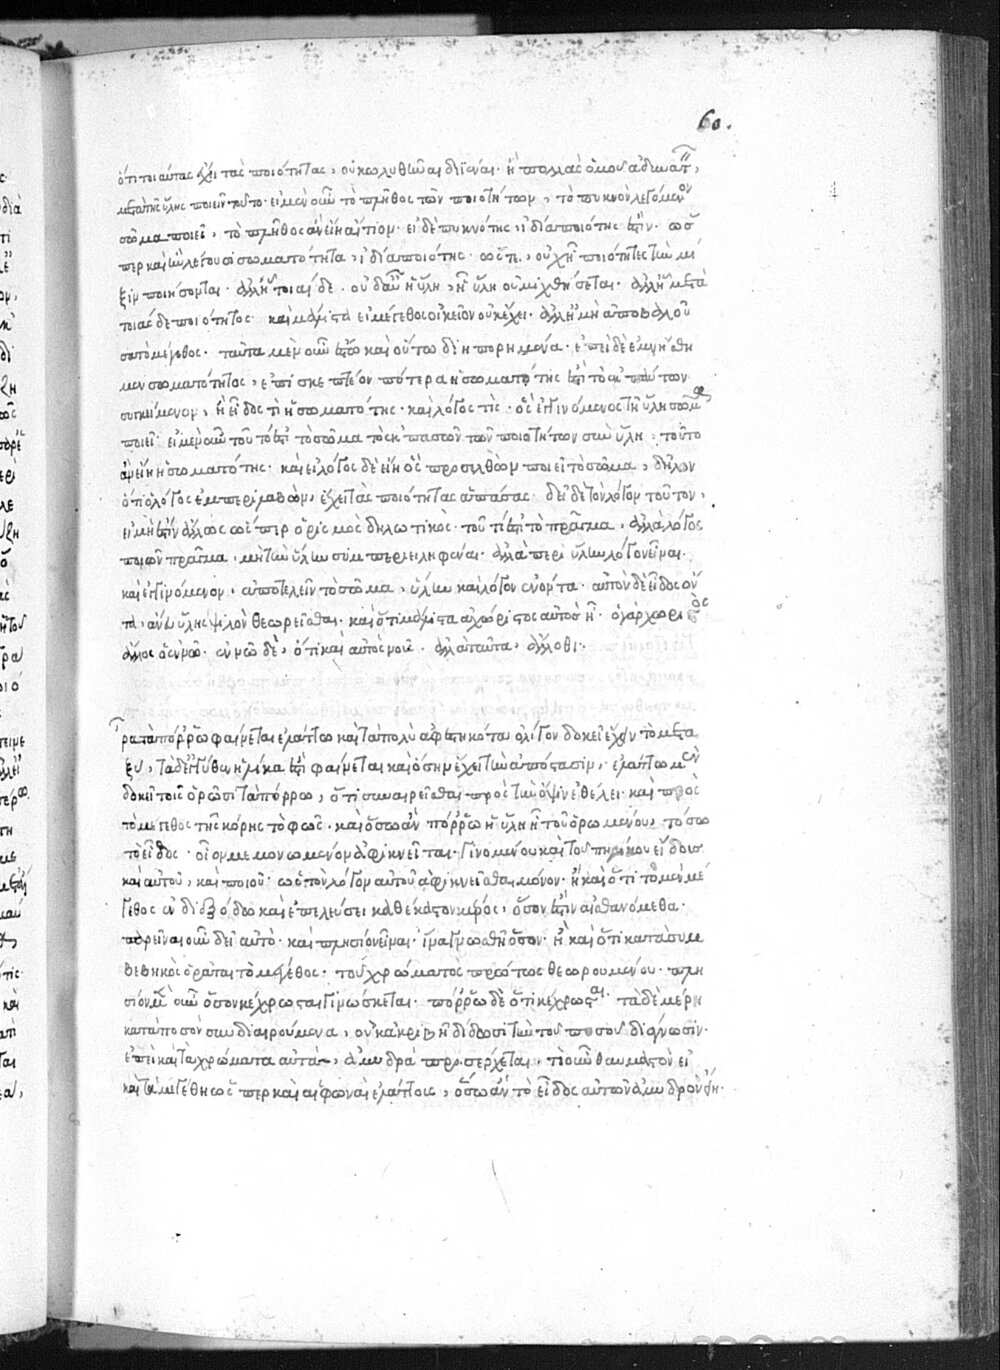 ὅτι τοιαύτας ἔχει τὰς ποιότητας, οὐ κωλυθῆναι διϊέναι. ἢ πολλὰς ὁμοῦ ἀδύνατον,
μετὰ τῆς ὕλης ποιεῖν τοῦτο. εἰ μὲν οὖν τὸ πλῆθος τῶν ποιοτήτων, τὸ πυκνὸν λεγόμενον
σῶμα ποιεῖ, τὸ πλῆθος ἂν εἴη αἴτιον. εἰ δὲ πυκνότης, ἰδία ποιότης ἐστίν. ὥσ
περ καὶ ἣν λέγουσι σωματότητα, ἰδία ποιότης. ὥστε, οὐχ ᾗ ποιότητες τὴν μί
ξιν ποιήσονται. ἀλλ' ᾗ τοιαίδε. οὐδ' αὖ ἡ ὕλη, ᾗ ὕλη οὐ μιχθήσεται. ἀλλ' ᾗ μετὰ
τοιᾶσδε ποιότητος. καὶ μάλιστα εἰ μέγεθος οἰκεῖον οὐκ ἔχει. ἀλλ' ἢ μὴ ἀποβαλοῦ
σα τὸ μέγεθος. ταῦτα μὲν οὖν ἔστω καὶ οὕτω διηπορημένα. ἐπεὶ δὲ ἐμνήσθη
μεν σωματότητος, ἐπισκεπτέον πότερα ἡ σωματότης ἐστὶ τὸ ἐκ πάντων
συγκείμενον, ἢ εἶδος τὶ ἡ σωματότης. καὶ λόγος τὶς. ὃς ἐγγινόμενος τῇ ὕλῃ σῶμα
ποιεῖ. εἰ μὲν οὖν τοῦτό ἐστι τὸ σῶμα τὸ ἐκ πασῶν τῶν ποιοτήτων σὺν ὕλῃ, τοῦτο
ἂν εἴη ἡ σωματότης. καὶ εἰ λόγος δὲ εἴη ὃς προσελθὼν ποιεῖ τὸ σῶμα, δῆλον
ὅτι ὁ λόγος ἐμπεριλαβὼν, ἔχει τὰς ποιότητας ἁπάσας. δεῖ δὲ τὸν λόγον τοῦτον,
εἰ μή ἐστιν ἄλλως ὥσπερ ὁρισμὸς δηλωτικὸς τοῦ τί ἐστι τὸ πρᾶγμα, ἀλλὰ λόγος
ποιῶν πρᾶγμα, μὴ τὴν ὕλην συμπεριειληφέναι. ἀλλὰ περὶ ὕλην λόγον εἶναι.
καὶ ἐγγινόμενον, ἀποτελεῖν τὸ σῶμα, ὕλην καὶ λόγον ἐνόντα. αὐτὸν δὲ εἶδος ὄν
τα, ἄνευ ὕλης ψιλὸν θεωρεῖσθαι. κἂν ὅτι μάλιστα ἀχώριστος αὐτὸς ᾖ. ὁ γὰρ χωριστὸς
ἄλλος ὁ ἐν νῷ. ἐν νῷ δὲ, ὅτι καὶ αὐτὸς νοῦς. ἀλλὰ ταῦτα, ἄλλοθι.
ρα τὰ πόρρω φαίνεται ἐλάττω καὶ τὰ πολὺ ἀφεστηκότα ὀλίγον δοκεῖ ἔχειν τὸ μετα
ξύ, τὰ δ' ἐγγύθεν ἡλίκα ἐστὶ φαίνεται καὶ ὅσην ἔχει τὴν ἀπόστασιν, ἐλάττω μὲν
δοκεῖ τοῖς ὁρῶσι τὰ πόρρω, ὅτι συναιρεῖσθαι πρὸς τὴν ὄψιν ἐθέλει. καὶ πρὸς
τὸ μέγεθος τῆς κόρης τὸ φῶς. καὶ ὅσῳ ἂν πόρρω ἡ ὕλη ᾖ τοῦ ὁρωμένου, τόσῳ
τὸ εἶδος. οἷον μεμονωμένον ἀφικνεῖται. γινομένου καὶ τοῦ πηλίκου εἴδους
καὶ αὐτοῦ, καὶ ποιοῦ. ὡς τὸν λόγον αὐτοῦ ἀφικνεῖσθαι μόνον. ἢ καὶ ὅτι τὸ μὲν μέ
γεθος ἐν διεξόδῳ καὶ ἐπελεύσει καθ' ἕκαστον μέρος, ὅσον ἐστὶν αἰσθανόμεθα.
παρεῖναι οὖν δεῖ αὐτὸ. καὶ πλησίον εἶναι. ἵνα γνωσθῇ ὅσον. ἢ καὶ ὅτι κατὰ συμ
βεβηκὸς ὁρᾶται τὸ μέγεθος. τοῦ χρώματος πρώτως θεωρουμένου. πλη
σίον μὲν οὖν ὅσον κέχρωσται γινώσκεται. πόρρω δὲ ὅτι κέχρωσται. τὰ δὲ μέρη
κατὰ ποσὸν συνδιαιρούμενα, οὐκ ἀκριβῆ δίδωσι τὴν τοῦ ποσοῦ διάγνωσιν.
ἐπεὶ καὶ τὰ χρώματα αὐτὰ, ἀμυδρὰ προσέρχεται, τί οὖν θαυμαστὸν εἰ
καὶ τὰ μεγέθη ὥσπερ καὶ αἱ φωναὶ ἐλάττους, ὅσῳ ἂν τὸ εἶδος αὐτῶν ἀμυδρὸν ᾖ.
60.